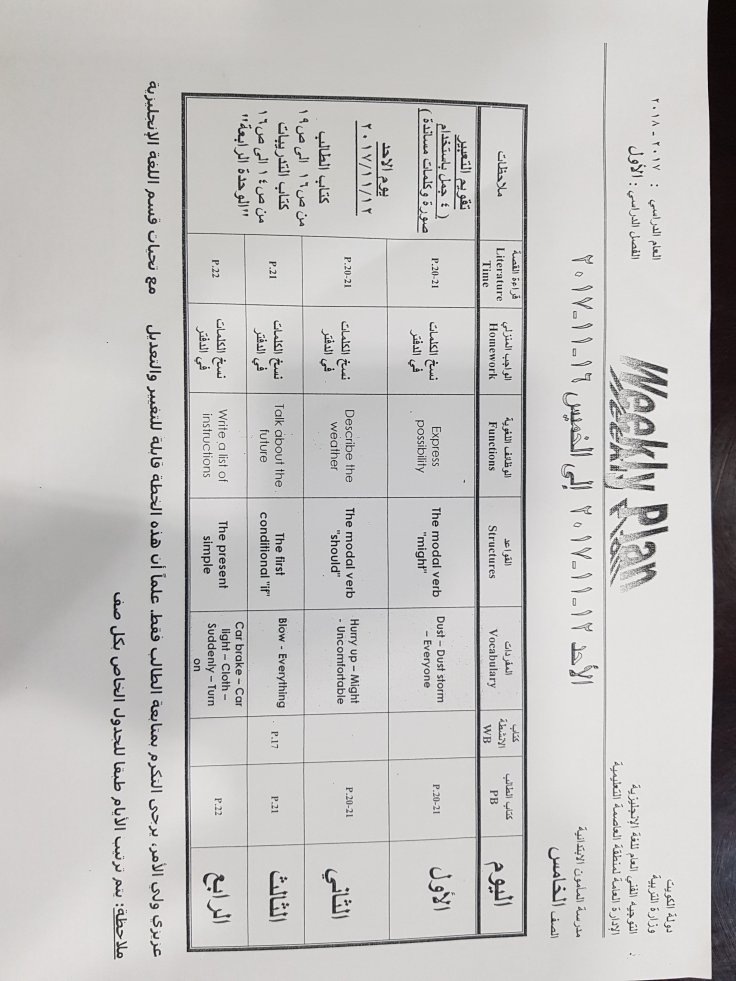 دولة الكويت
وزارة التربية
التوجيه الفني العام للغة الإنجليزية
الإدارة العامة لمنطقة العاصمة التعليمية
مدرسة المأمون الابتدائية
الصف الخامس
Weekly Plan
العام الدراسي : ٢٠١٧ - ٢٠١٨
الفصل الدراسي : الأول
الأحد ١٢-١١-٢٠١٧ إلى الخميس ١٦-١١-٢٠١٧
اليوم
كتاب الطالب
PB
كتاب الأنشطة
WB
المفردات
Vocabulary
القواعد
Structures
الوظائف اللغوية
Functions
الواجب المنزلي
Homework
قراءة القصة
Literature
Time
ملاحظات
الأول
P.20-21
Dust – Dust storm
– Everyone
The modal verb
"might"
Express
possibility
نسخ الكلمات
في الدفتر
P.20-21
الثاني
P.20-21
Hurry up – Might
- Uncomfortable
The modal verb
"should"
Describe the
weather
نسخ الكلمات
في الدفتر
P.20-21
الثالث
P.21
P.17
Blow - Everything
The first
conditional "if"
Talk about the
future
نسخ الكلمات
في الدفتر
P.21
الرابع
P.22
Car brake – Car
light – Cloth –
Suddenly – Turn
on
The present
simple
Write a list of
instructions
نسخ الكلمات
في الدفتر
P.22
تقويم التعبير
( ٤ جمل باستخدام
صورة وكلمات مساندة )
يوم الاحد
٢٠١٧/١١/١٢
كتاب الطالب
من ص١٦ الى ص١٩
كتاب التدريبات
من ص١٤ الى ص١٦
"الوحدة الرابعة"
عزيزي ولي الأمر، يرجى التكرم بمتابعة الطالب فقط. علماً أن هذه الخطة قابلة للتغيير والتعديل مع تحيات قسم اللغة الإنجليزية
ملاحظة: يتم ترتيب الأيام طبقا للجدول الخاص بكل صف